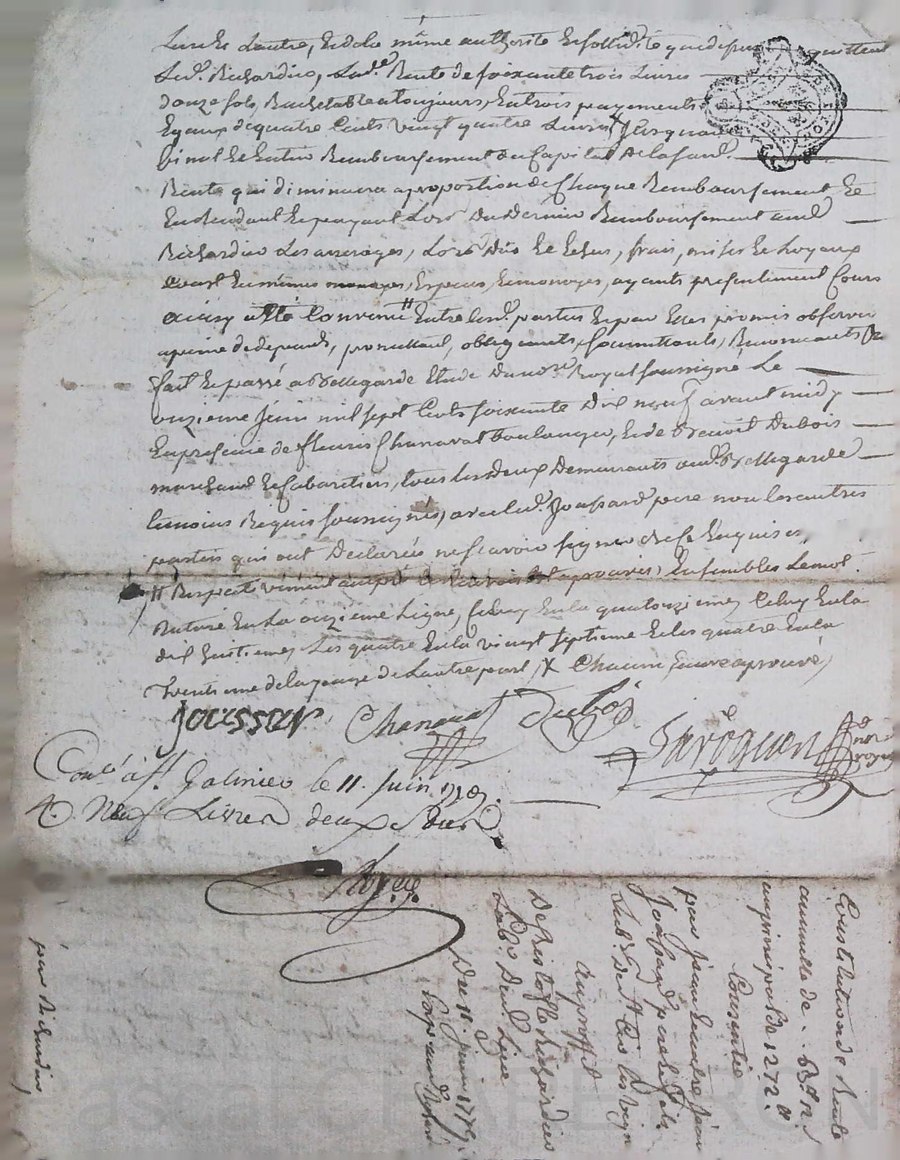 L'un Et L'autre, Et de la même authorité Et sollidité que dessus
Led. Richardier, Lad.e Rente de soixante trois Livres
douze sols, Rachetable a toujours, En trois payements
Egaux de quatre Cents vingt quatre Livres X Jusqu'au
final Et Entier Remboursement du Capital de lasusd.
Rente qui diminuera a proportion de Chaque Remboursement Et
En Rendant Et payant Lors du dernier Remboursement aud.
Richardier Les arrerages, Lors Dûs Et Echus, frais, mises Et Loyaux
Couts En mêmes Espèces, Et monoyes, ayants presentement Cours
ainsy a Eté Convenu // Entre Lesd. parties Et par Elles promis observer
a peine de depends, promettant, obligeants, soumettants, Renonceants &c
fait Et passé a Bellegarde Etude du no.re Royal soussigné Le
onzieme Juin mil sept Cents soixante dix neuf avant midy
En presence de fleurie Chanavat boulanger, Et de Benoit Dubois
marchand Et Cabaretier, tous Les deux Demeurants aud. Bellegarde
temoins Requis soussignés, avec led. Joussard pere non Les autres
parties qui ont Declarés ne sçavoir signer de ce Enquises,
// Respectivement accepté approuvés, Ensembles Le mot
Raturé En La onzieme Ligne, Celuy En La quatorzieme, Celuy En La
dix huitieme, Les quatre En La vingt septieme Et Les quatre En La
Trentieme de La page de L'autre part, X Chacun Encore aprouvé,
Joussar Chanavat Dubois
Baroquan no.re Royal
Con.le a S.t Galmier le 11. Juin 1779.
R. Neuf Livres deux Sous
Royere
Constitution de Rente
annuelle de 63 # 12 s
au principal de 1272 #
Consentie
par jean Leautre jean
Joussard pere Et fils
Lab.
au profit
De Christofle Richardier
Lab.
Du 11. juin 1779.
Expédié
pour Richardier
Pascal CHABEYRON